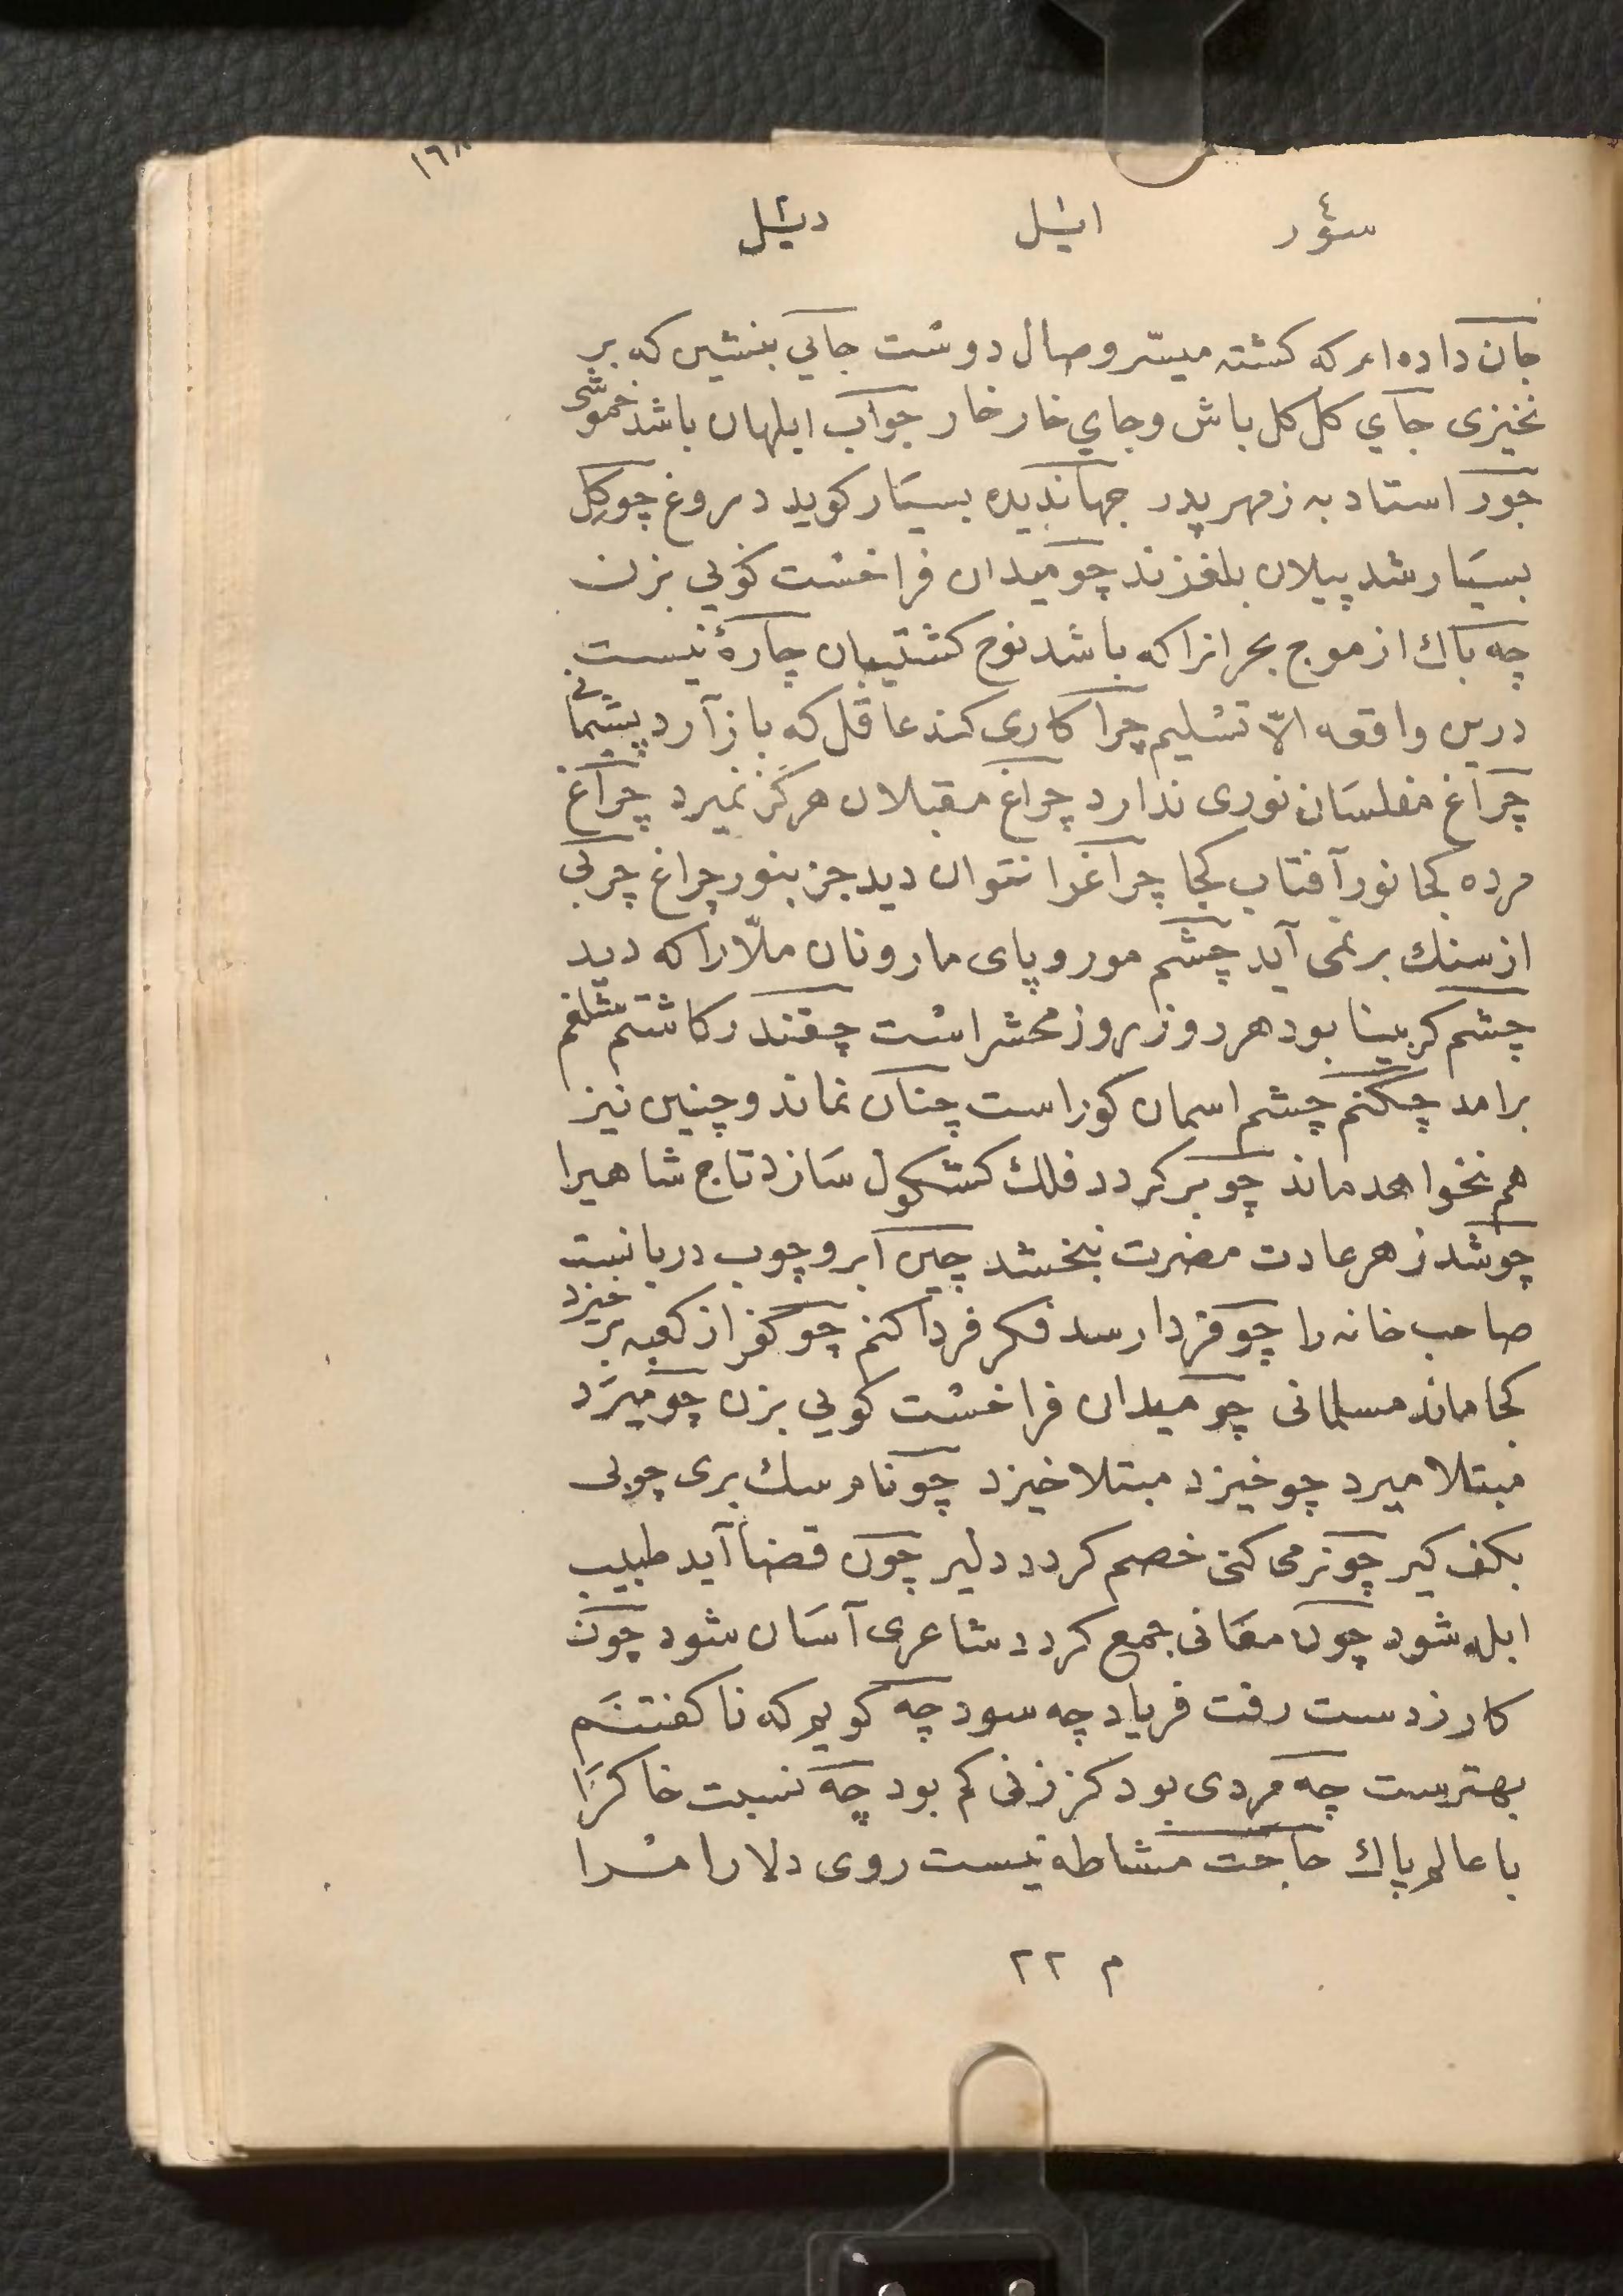 ١٦٨
سؤر ايشل ديشل
جان داده‌ام كه كشته ميسّر وصال دوست جايي بنشين كه بر
نخيزى جاي كل كل باش وجاي خار خار جواب ابلهان باشد خموشى
جور استاد به زمهر پدر جهانديده بسيَار كويد دروغ چو كِل
بسيَار شد پيلان بلغزند چو ميدان فراخست كويي بزن
چه باك از موج بحر انرا كه باشد نوح كشتيبان چارهٔ نيست
درين واقعه الاّ تسليم چرا كارى كند عاقل كه باز آرد پشيمانى
چراغ مفلسَان نورى ندارد چراغ مقبلان هركز نميرد چراغ
مرده كجا نور آفتاب كجا چراغرا نتوان ديد جز بنور چراغ چربى
از سنك بر نمى آيد چشم مور و پاى مار ونان ملّا را كه ديد
چشم كر بينا بود هر روز روز محشر است چقندر كاشتم شلغم
برامد چكنم چشم اسمان كوراست چنان نماند وچنين نيز
هم نخواهد ماند چو بر كردد فلك كشكول سَازد تاج شاهيرا
چو شد زهر عادت مضرت نبخشد چين ابرو چوب دربانست
صاحب خانه را چو فردا رسد فكر فردا كنم چو كفر از كعبه بر خيزد
كجا ماند مسلمانى چو ميدان فراخست كويي بزن چو ميرَد
مبتلا ميرد چو خيزد مبتلا خيزد چو نام سك برى چوبى
بكف كير چو نرمى كنى خصم كردد دلير چون قضا آيد طبيب
ابله شود چون معَانى جمع كردد شاعرى آسَان شود چون
كار زدست رفت فرياد چه سود چه كويم كه ناكفتنَم
بهترست چه مردى بود كز زنى كم بود چه نسبت خاكرَا
با عالم پاك حاجت مشاطه نيست روى دلارام را
م ٢٢